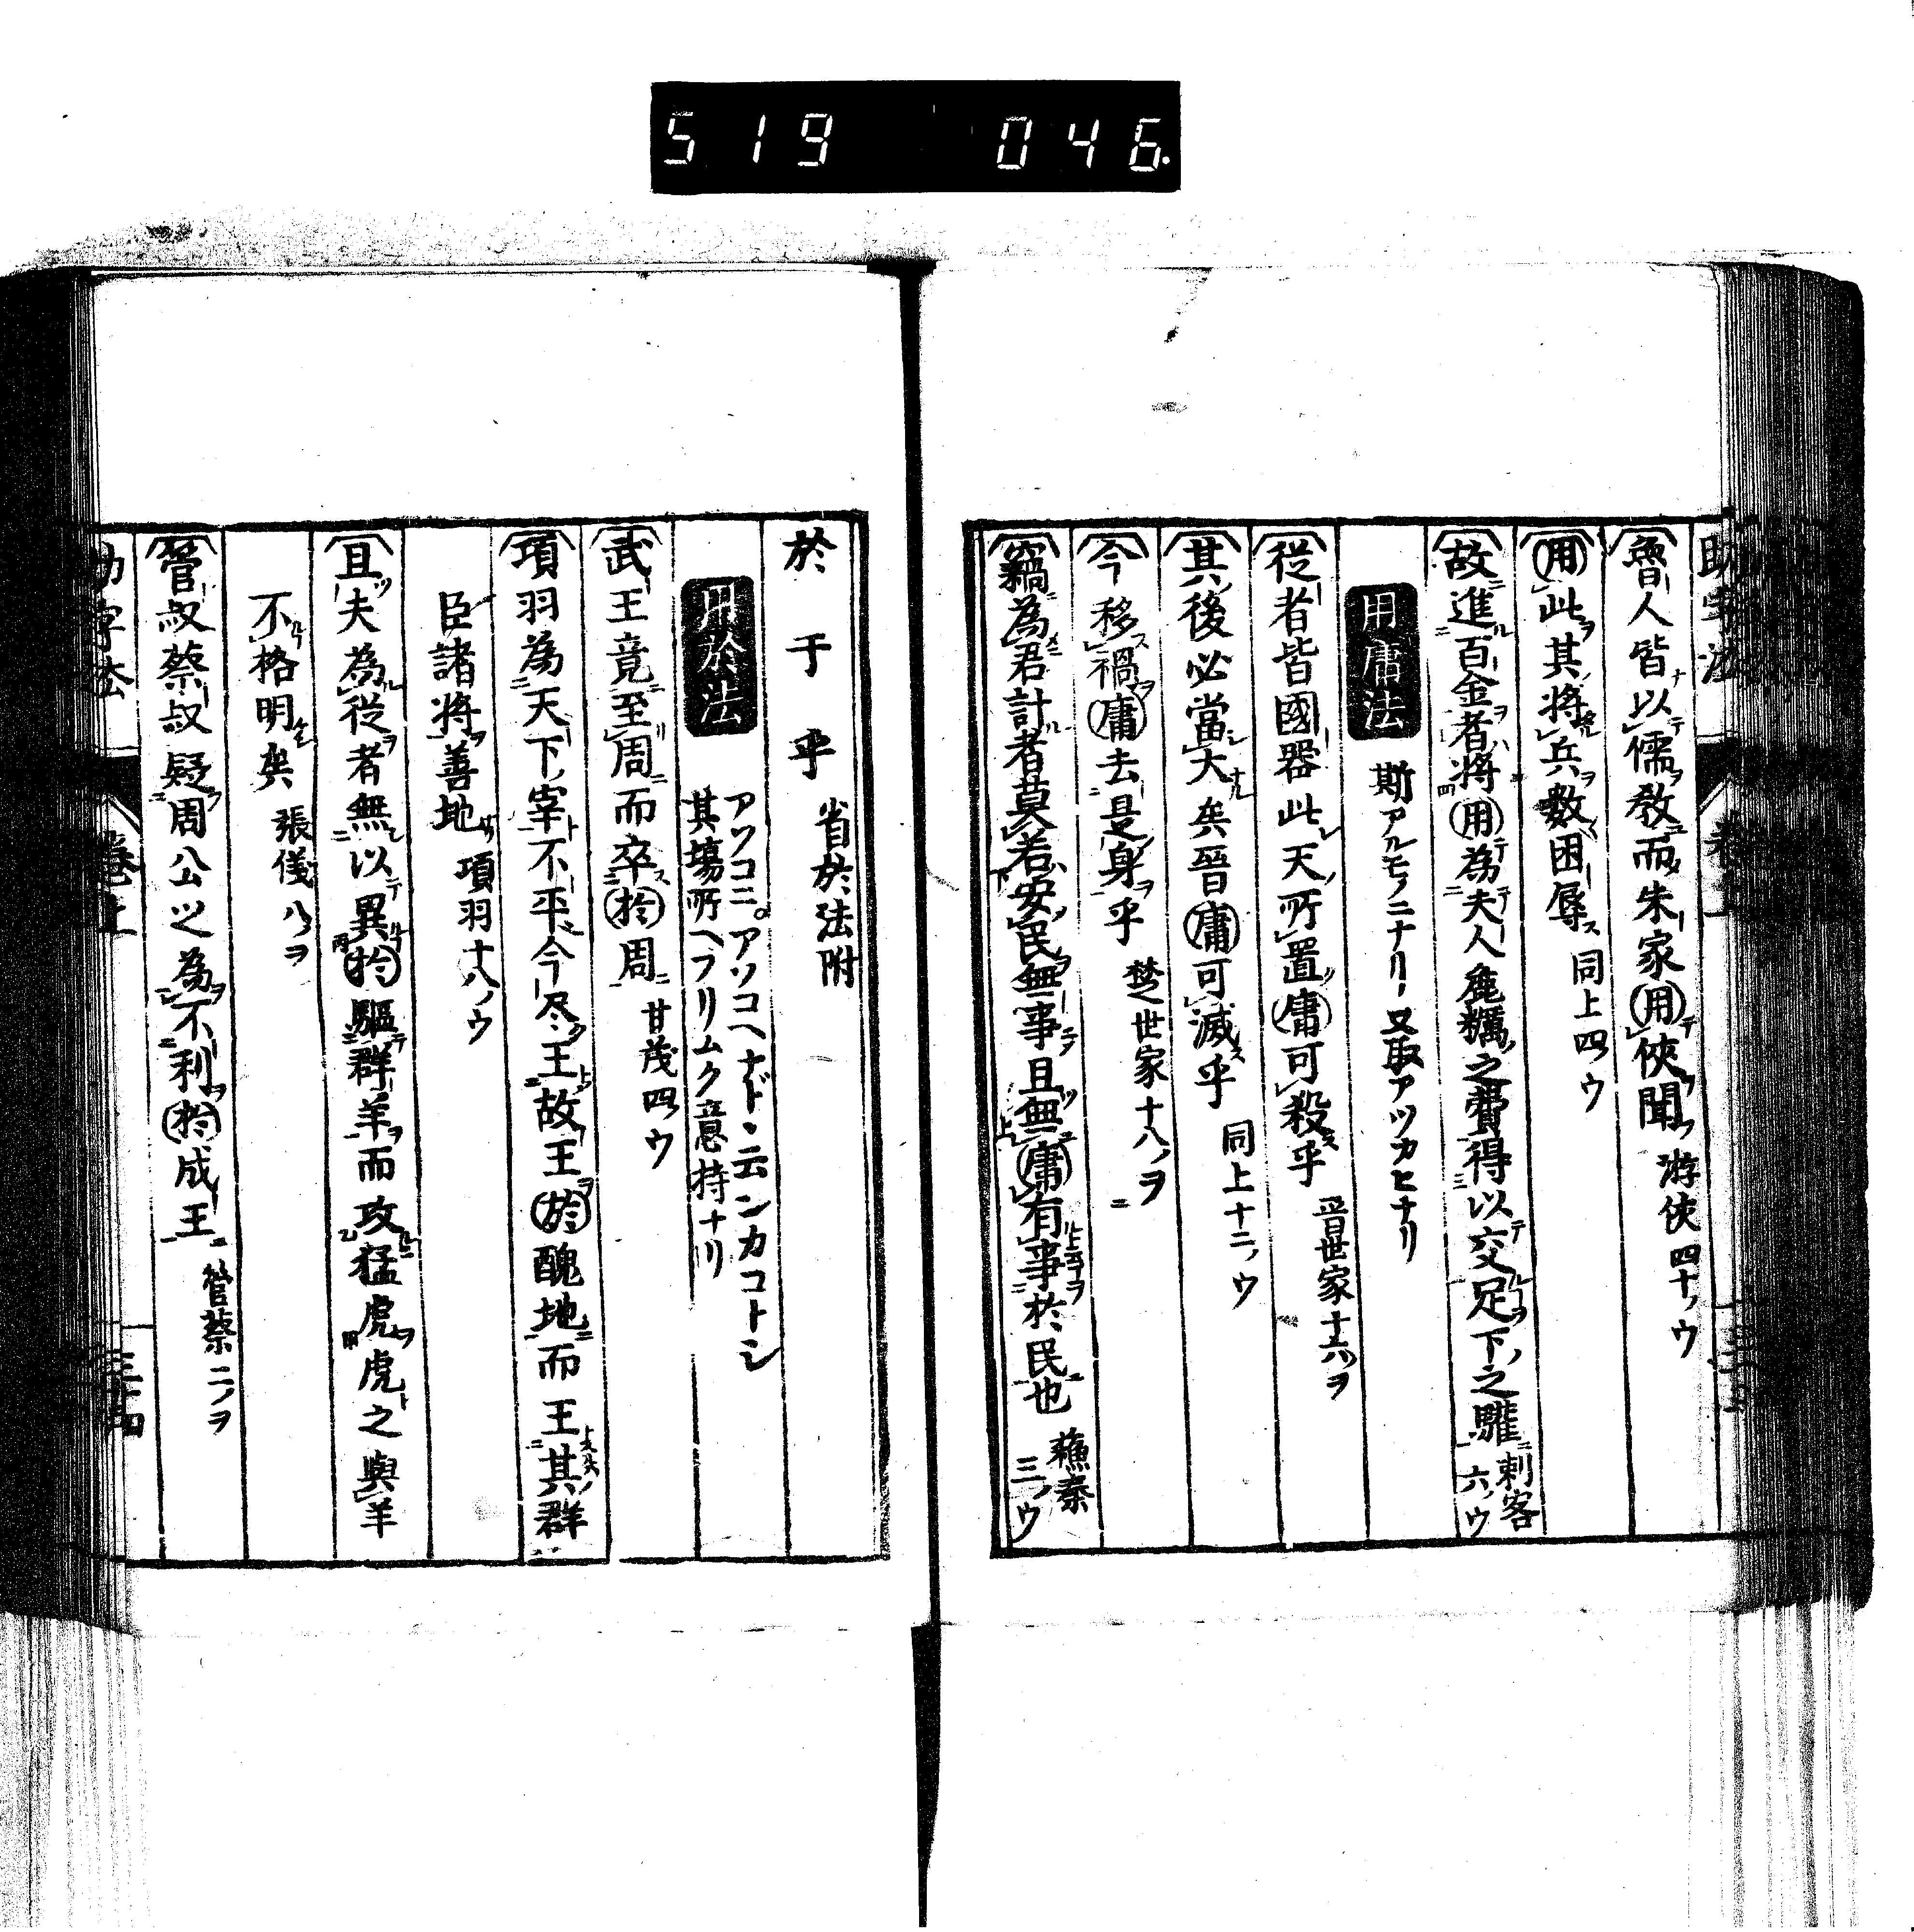 519 046.
魯人皆以儒教而朱家用俠聞 游俠四十ノウ
用此其將兵數困辱 同上四ウ
故進百金者將用為夫人麁糲之費得以交足下之驩 刺客六ノウ
用庸法 斯アルモノニナリ又取アツカヒナリ
從者皆國器此天所置庸可殺乎 晋世家十六ノヲ
其後必當大矣晉庸可滅乎 同上十二ノウ
今移禍庸去是身乎 楚世家十八ノヲ
竊為君計者莫若安民無事且無庸有事於民也 蘓秦三ノウ
於于乎 省於法附
用於法 アソコニ。アソコヘナド云ンカコトシ
其塲所ヘフリムク意持ナリ
武王竟至周而卒於周 甘茂四ウ
項羽為天下宰不平今尽王故王於醜地而王其群
臣諸將善地 項羽十八ノウ
且夫為從者無以異於驅群羊而攻猛虎虎之與羊
不格明矣 張儀八ヲ
管叔蔡叔疑周公之為不利於成王 管蔡二ノヲ
助字法 卷上